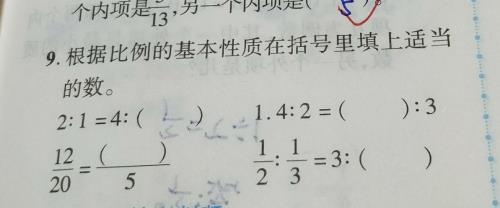 个内项是 /13,另一个内项是( 5 )。
9. 根据比例的基本性质在括号里填上适当
的数。
2:1=4:(    )    1.4:2=(    ):3
12/20=(    )/5    1/2:1/3=3:(    )